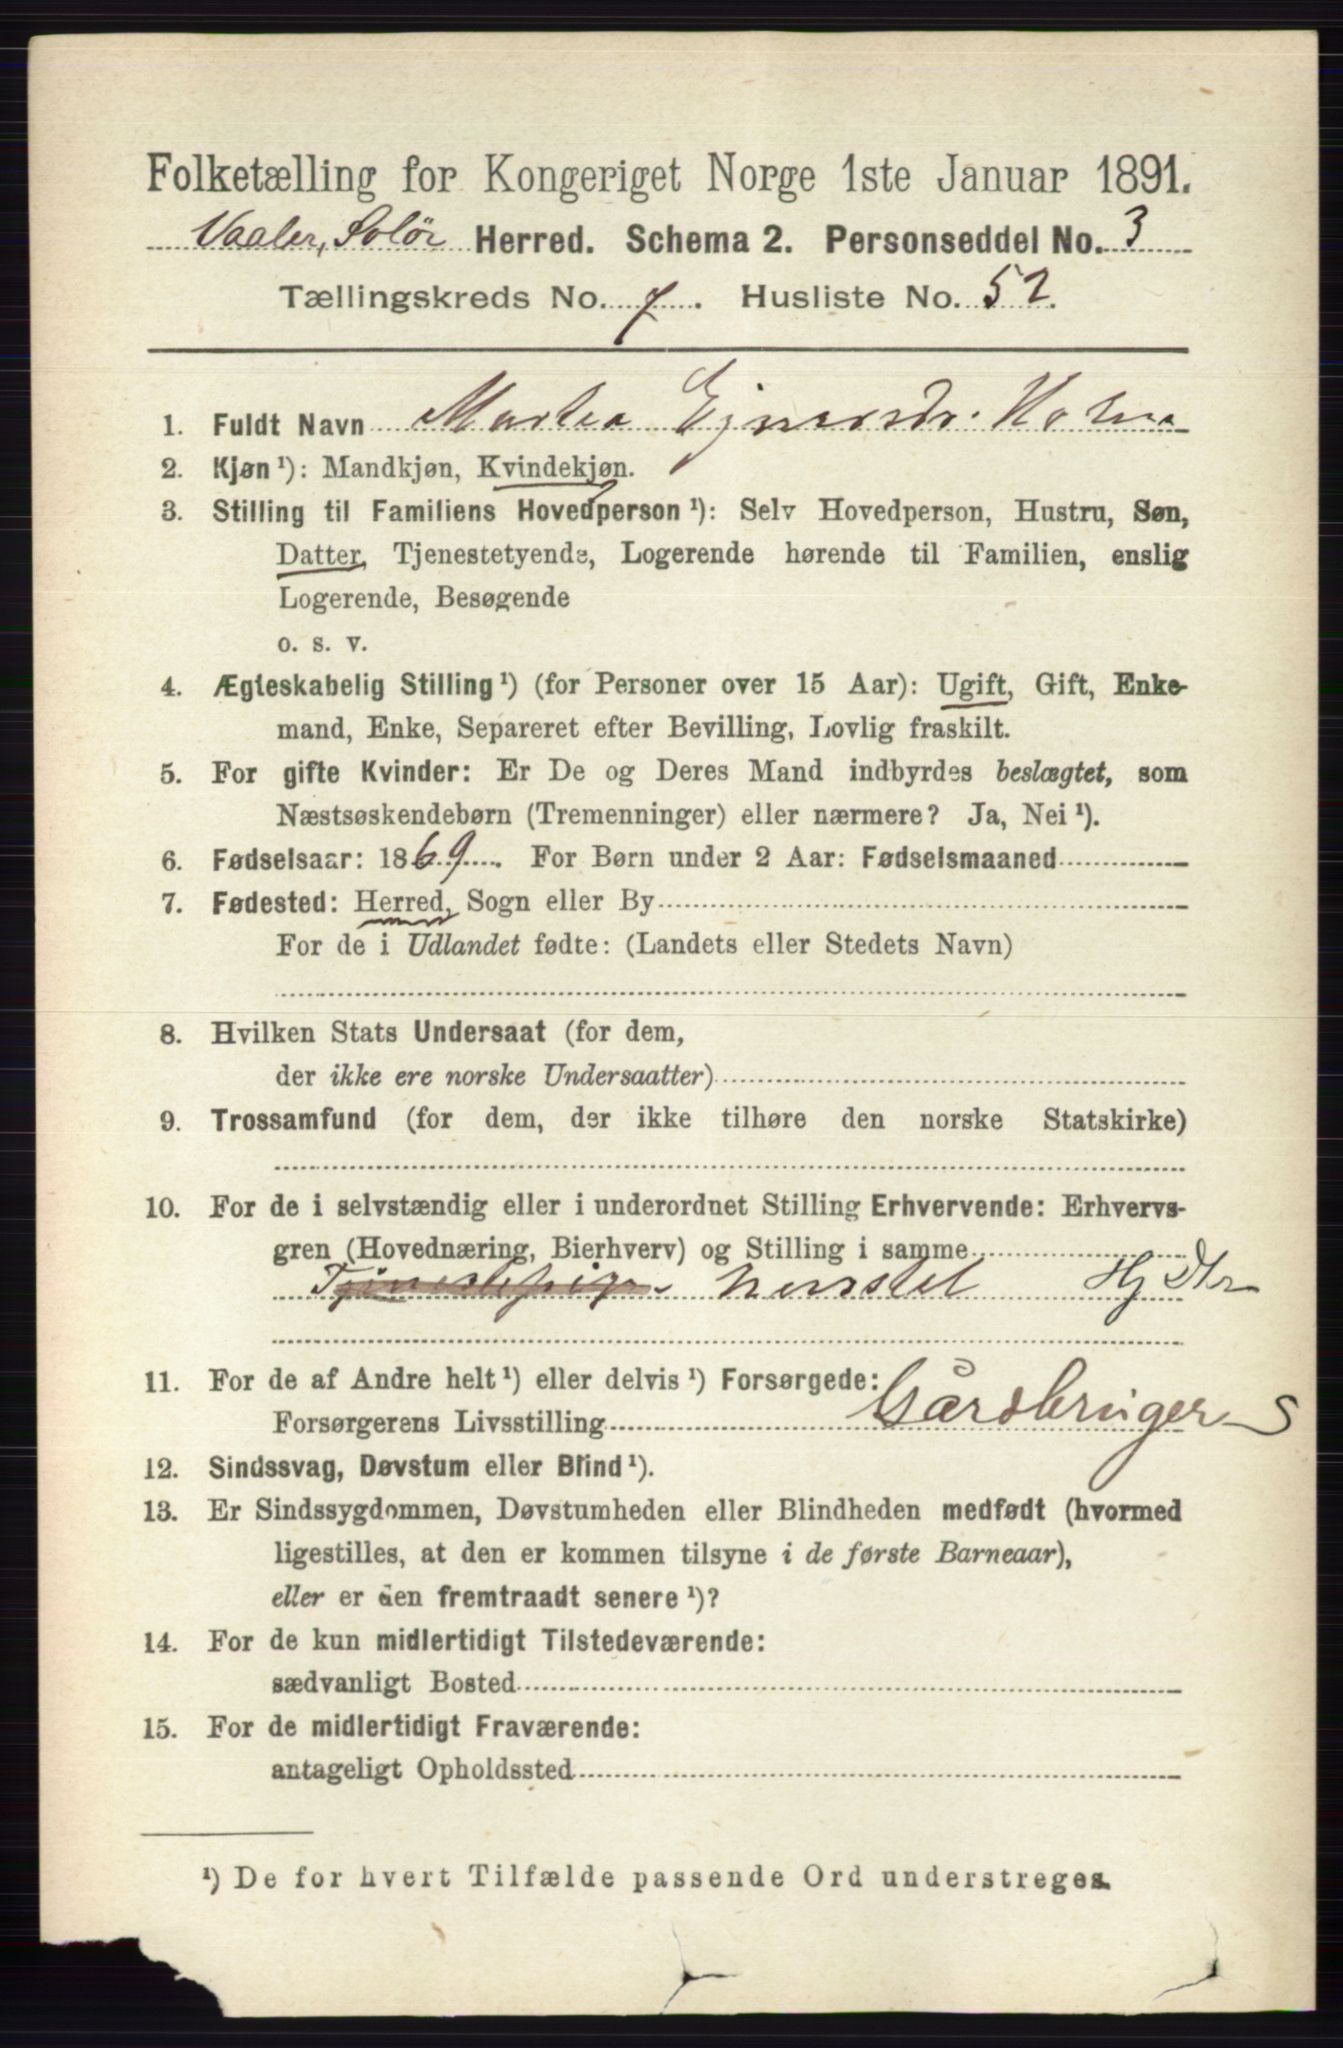 Folketælling for Kongeriget Norge 1ste Januar 1891.
Vaaler, Solör Herred. Schema 2. Personseddel No. 3
Tællingskreds No. 7. Husliste No. 52.
1. Fuldt Navn Martea Ejnarsdr. Holen
2. Kjøn ¹): Mandkjøn, Kvindekjøn.
3. Stilling til Familiens Hovedperson ¹): Selv Hovedperson, Hustru, Søn,
Datter, Tjenestetyende, Logerende hørende til Familien, enslig
Logerende, Besøgende
o. s. v.
4. Ægteskabelig Stilling ¹) (for Personer over 15 Aar): Ugift, Gift, Enke-
mand, Enke, Separeret efter Bevilling, Lovlig fraskilt.
5. For gifte Kvinder: Er De og Deres Mand indbyrdes beslægtet, som
Næstsøskendebørn (Tremenninger) eller nærmere? Ja, Nei ¹).
6. Fødselsaar: 1869. For Børn under 2 Aar: Fødselsmaaned
7. Fødested: Herred, Sogn eller By
For de i Udlandet fødte: (Landets eller Stedets Navn)
8. Hvilken Stats Undersaat (for dem,
der ikke ere norske Undersaatter)
9. Trossamfund (for dem, der ikke tilhøre den norske Statskirke)
10. For de i selvstændig eller i underordnet Stilling Erhvervende: Erhvervs-
gren (Hovednæring, Bierhverv) og Stilling i samme
Tjenestepige Hj Dtr
11. For de af Andre helt ¹) eller delvis ¹) Forsørgede:
Forsørgerens Livsstilling Gårdbruger S
12. Sindssvag, Døvstum eller Blind ¹).
13. Er Sindssygdommen, Døvstumheden eller Blindheden medfødt (hvormed
ligestilles, at den er kommen tilsyne i de første Barneaar),
eller er den fremtraadt senere ¹)?
14. For de kun midlertidigt Tilstedeværende:
sædvanligt Bosted
15. For de midlertidigt Fraværende:
antageligt Opholdssted
¹) De for hvert Tilfælde passende Ord understreges.